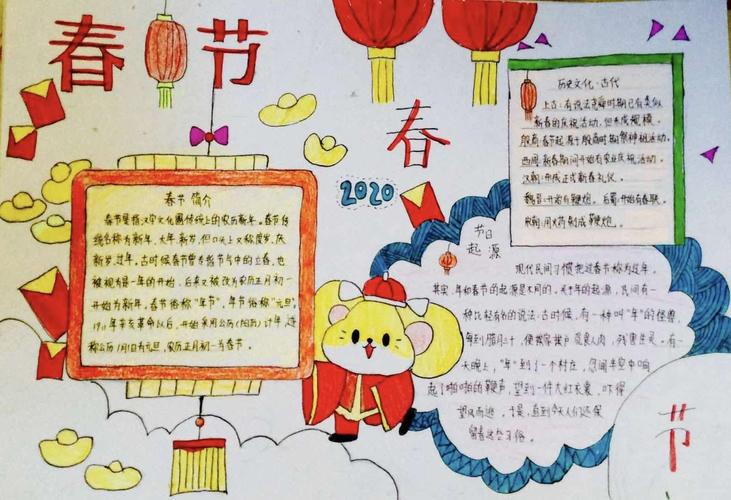 春节
春
2020
春节 简介
春节是指汉字文化圈传统上的农历新年。春节传
统名称为新年、大年、新岁,但口头上又称度岁、庆
新岁、过年。古时候春节曾专指节气中的立春,也
被视为是一年的开始,后来又被改为农历正月初一
开始为新年。春节俗称“年节”,年节俗称“元旦”。
1911年辛亥革命以后,开始采用公历(阳历)计年,遂
称公历1月1日为元旦,农历正月初一为春节。
历史文化·古代
上古:有说法尧舜时期已有类似
新春的庆祝活动,但未成规模。
殷商:春节起源于殷商时期祭神祖活动。
西周:新春期间开始有农业庆祝活动。
汉朝:形成正式新春礼仪。
魏晋:开始有鞭炮。后蜀:开始有春联。
宋朝:用火药制成鞭炮。
节日
起源
现代民间习惯把过春节称为过年。
其实,年和春节的起源是不同的。关于年的起源,民间有一
种比较有名的说法:古时候,有一种叫“年”的怪兽,
每到腊月三十,便挨家挨户觅食人肉,残害生灵。有一
天晚上,“年”到了一个村庄,忽闻半空中响
起了啪啪的鞭声,望到一件大红衣裳,吓得
望风而逃,于是,直到今天人们还保
留着这些习俗。
节